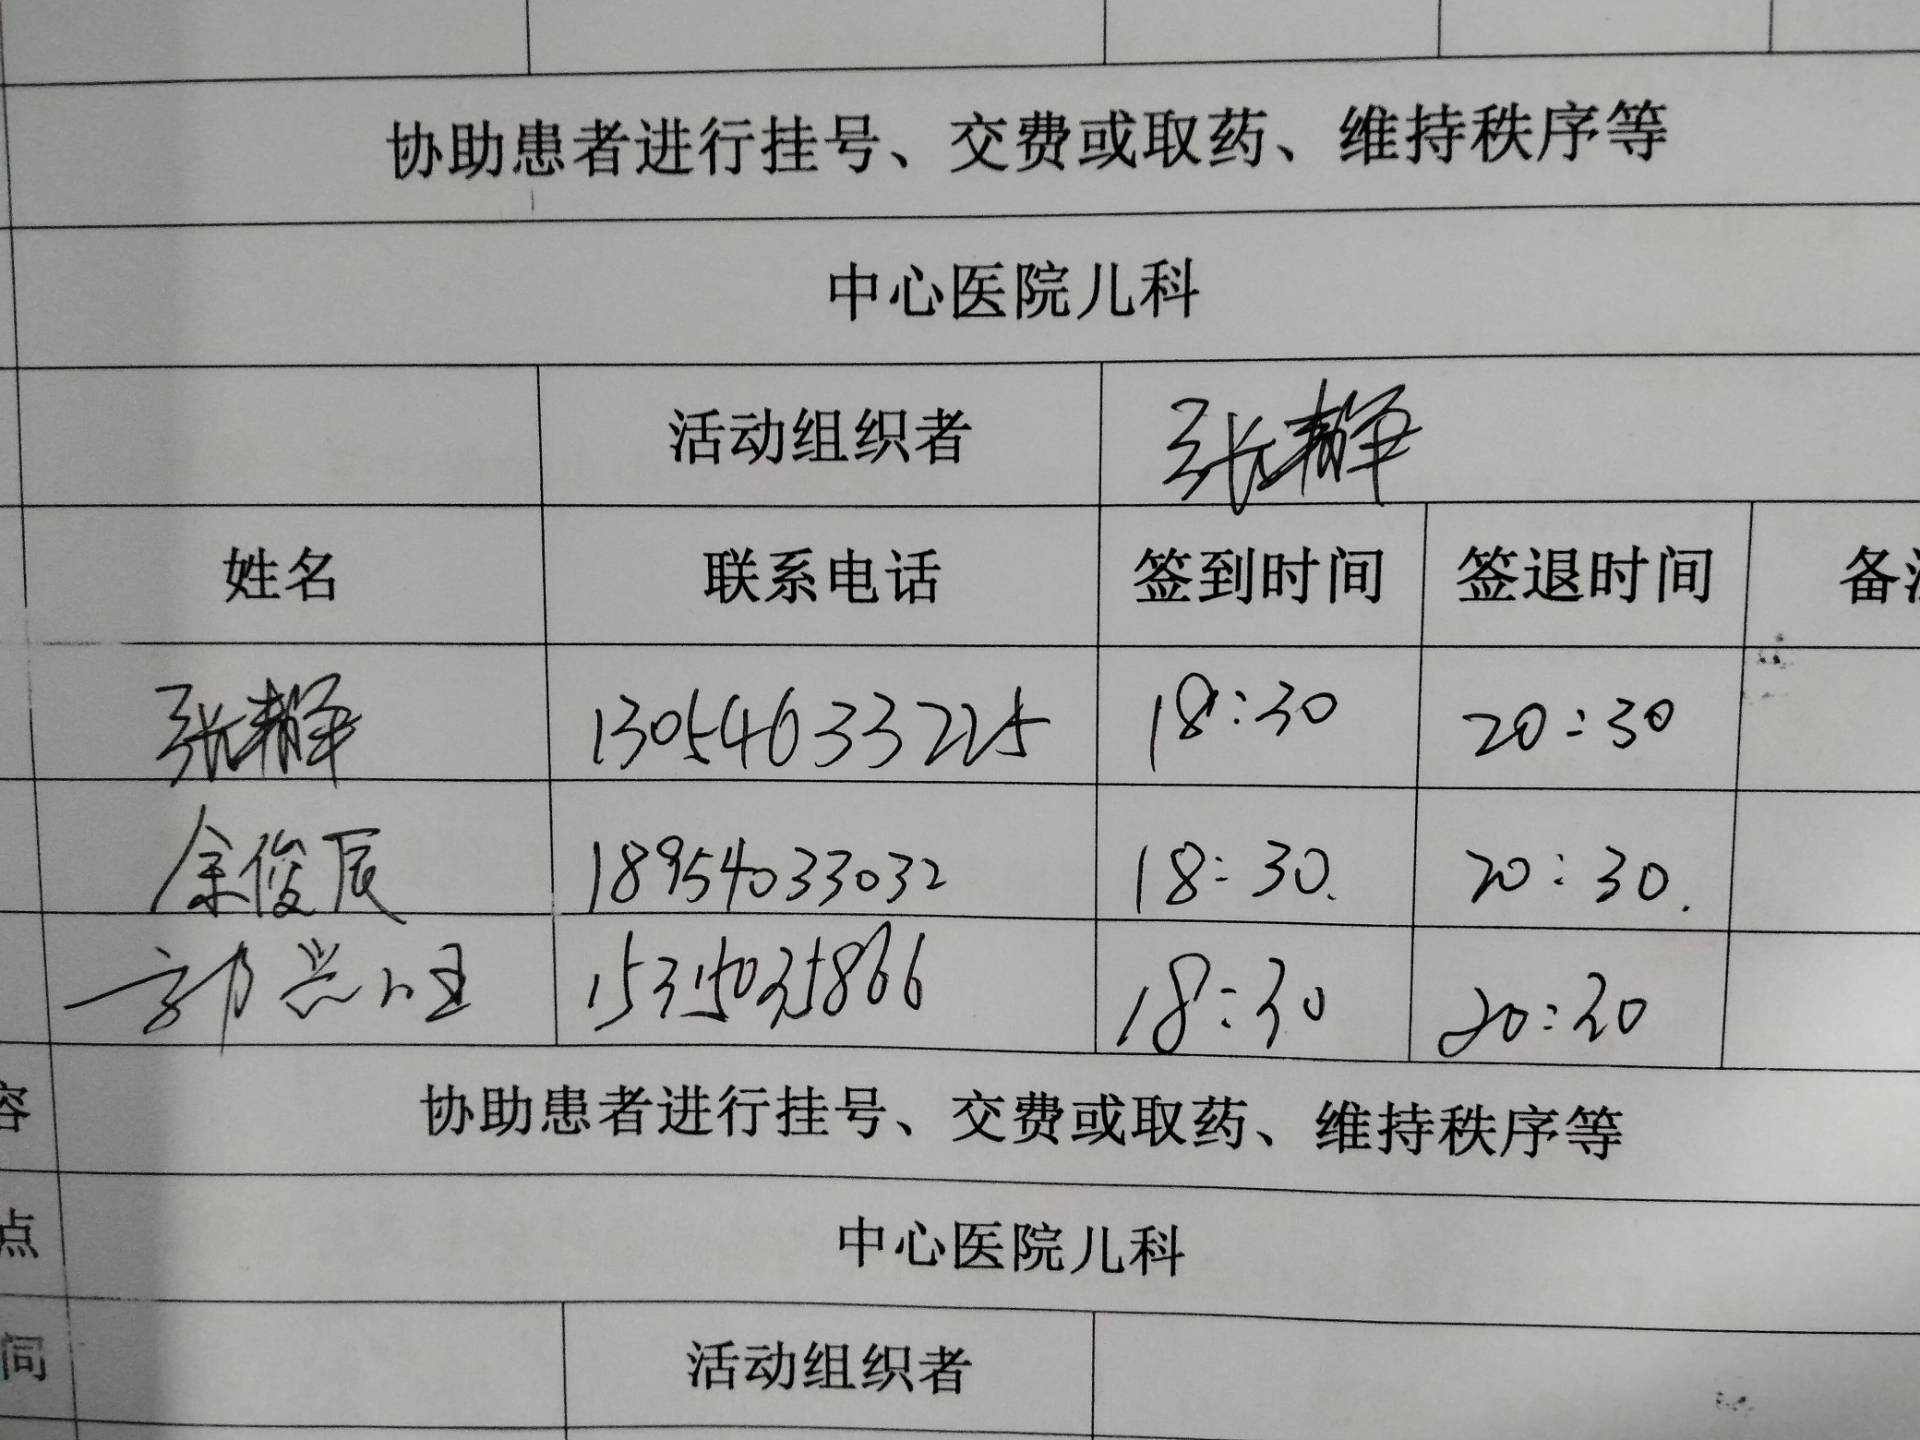 协助患者进行挂号、交费或取药、维持秩序等
中心医院儿科
活动组织者 张静
姓名 联系电话 签到时间 签退时间 备注
张静 13054633225 18:30 20:30
余俊辰 18954033032 18:30. 20:30.
郭兴旺 15315035866 18:30 20:30
容 协助患者进行挂号、交费或取药、维持秩序等
点 中心医院儿科
间 活动组织者